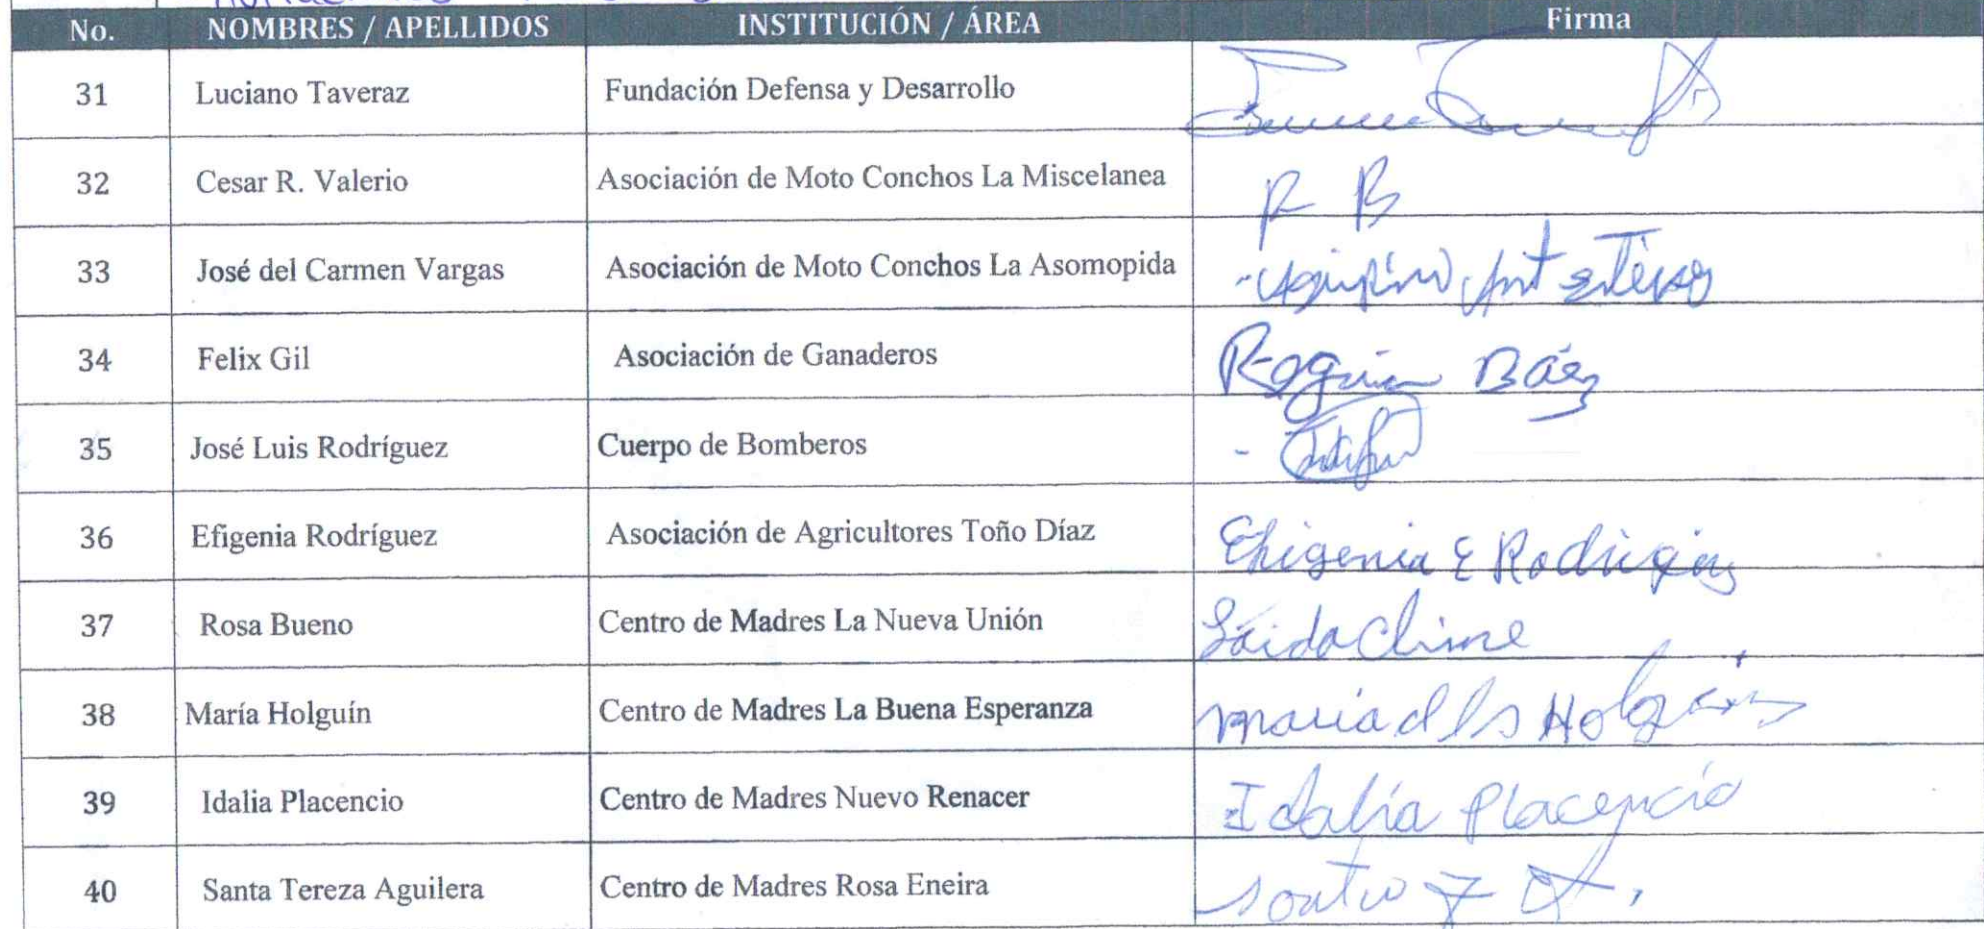 No. NOMBRES / APELLIDOS INSTITUCIÓN / ÁREA Firma
31 Luciano Taveraz Fundación Defensa y Desarrollo
32 Cesar R. Valerio Asociación de Moto Conchos La Miscelanea R B
33 José del Carmen Vargas Asociación de Moto Conchos La Asomopida
34 Felix Gil Asociación de Ganaderos Báez
35 José Luis Rodríguez Cuerpo de Bomberos
36 Efigenia Rodríguez Asociación de Agricultores Toño Díaz Efigenia E Rodriguez
37 Rosa Bueno Centro de Madres La Nueva Unión
38 María Holguín Centro de Madres La Buena Esperanza maria d ls Holguin
39 Idalia Placencio Centro de Madres Nuevo Renacer Idalia Placencio
40 Santa Tereza Aguilera Centro de Madres Rosa Eneira